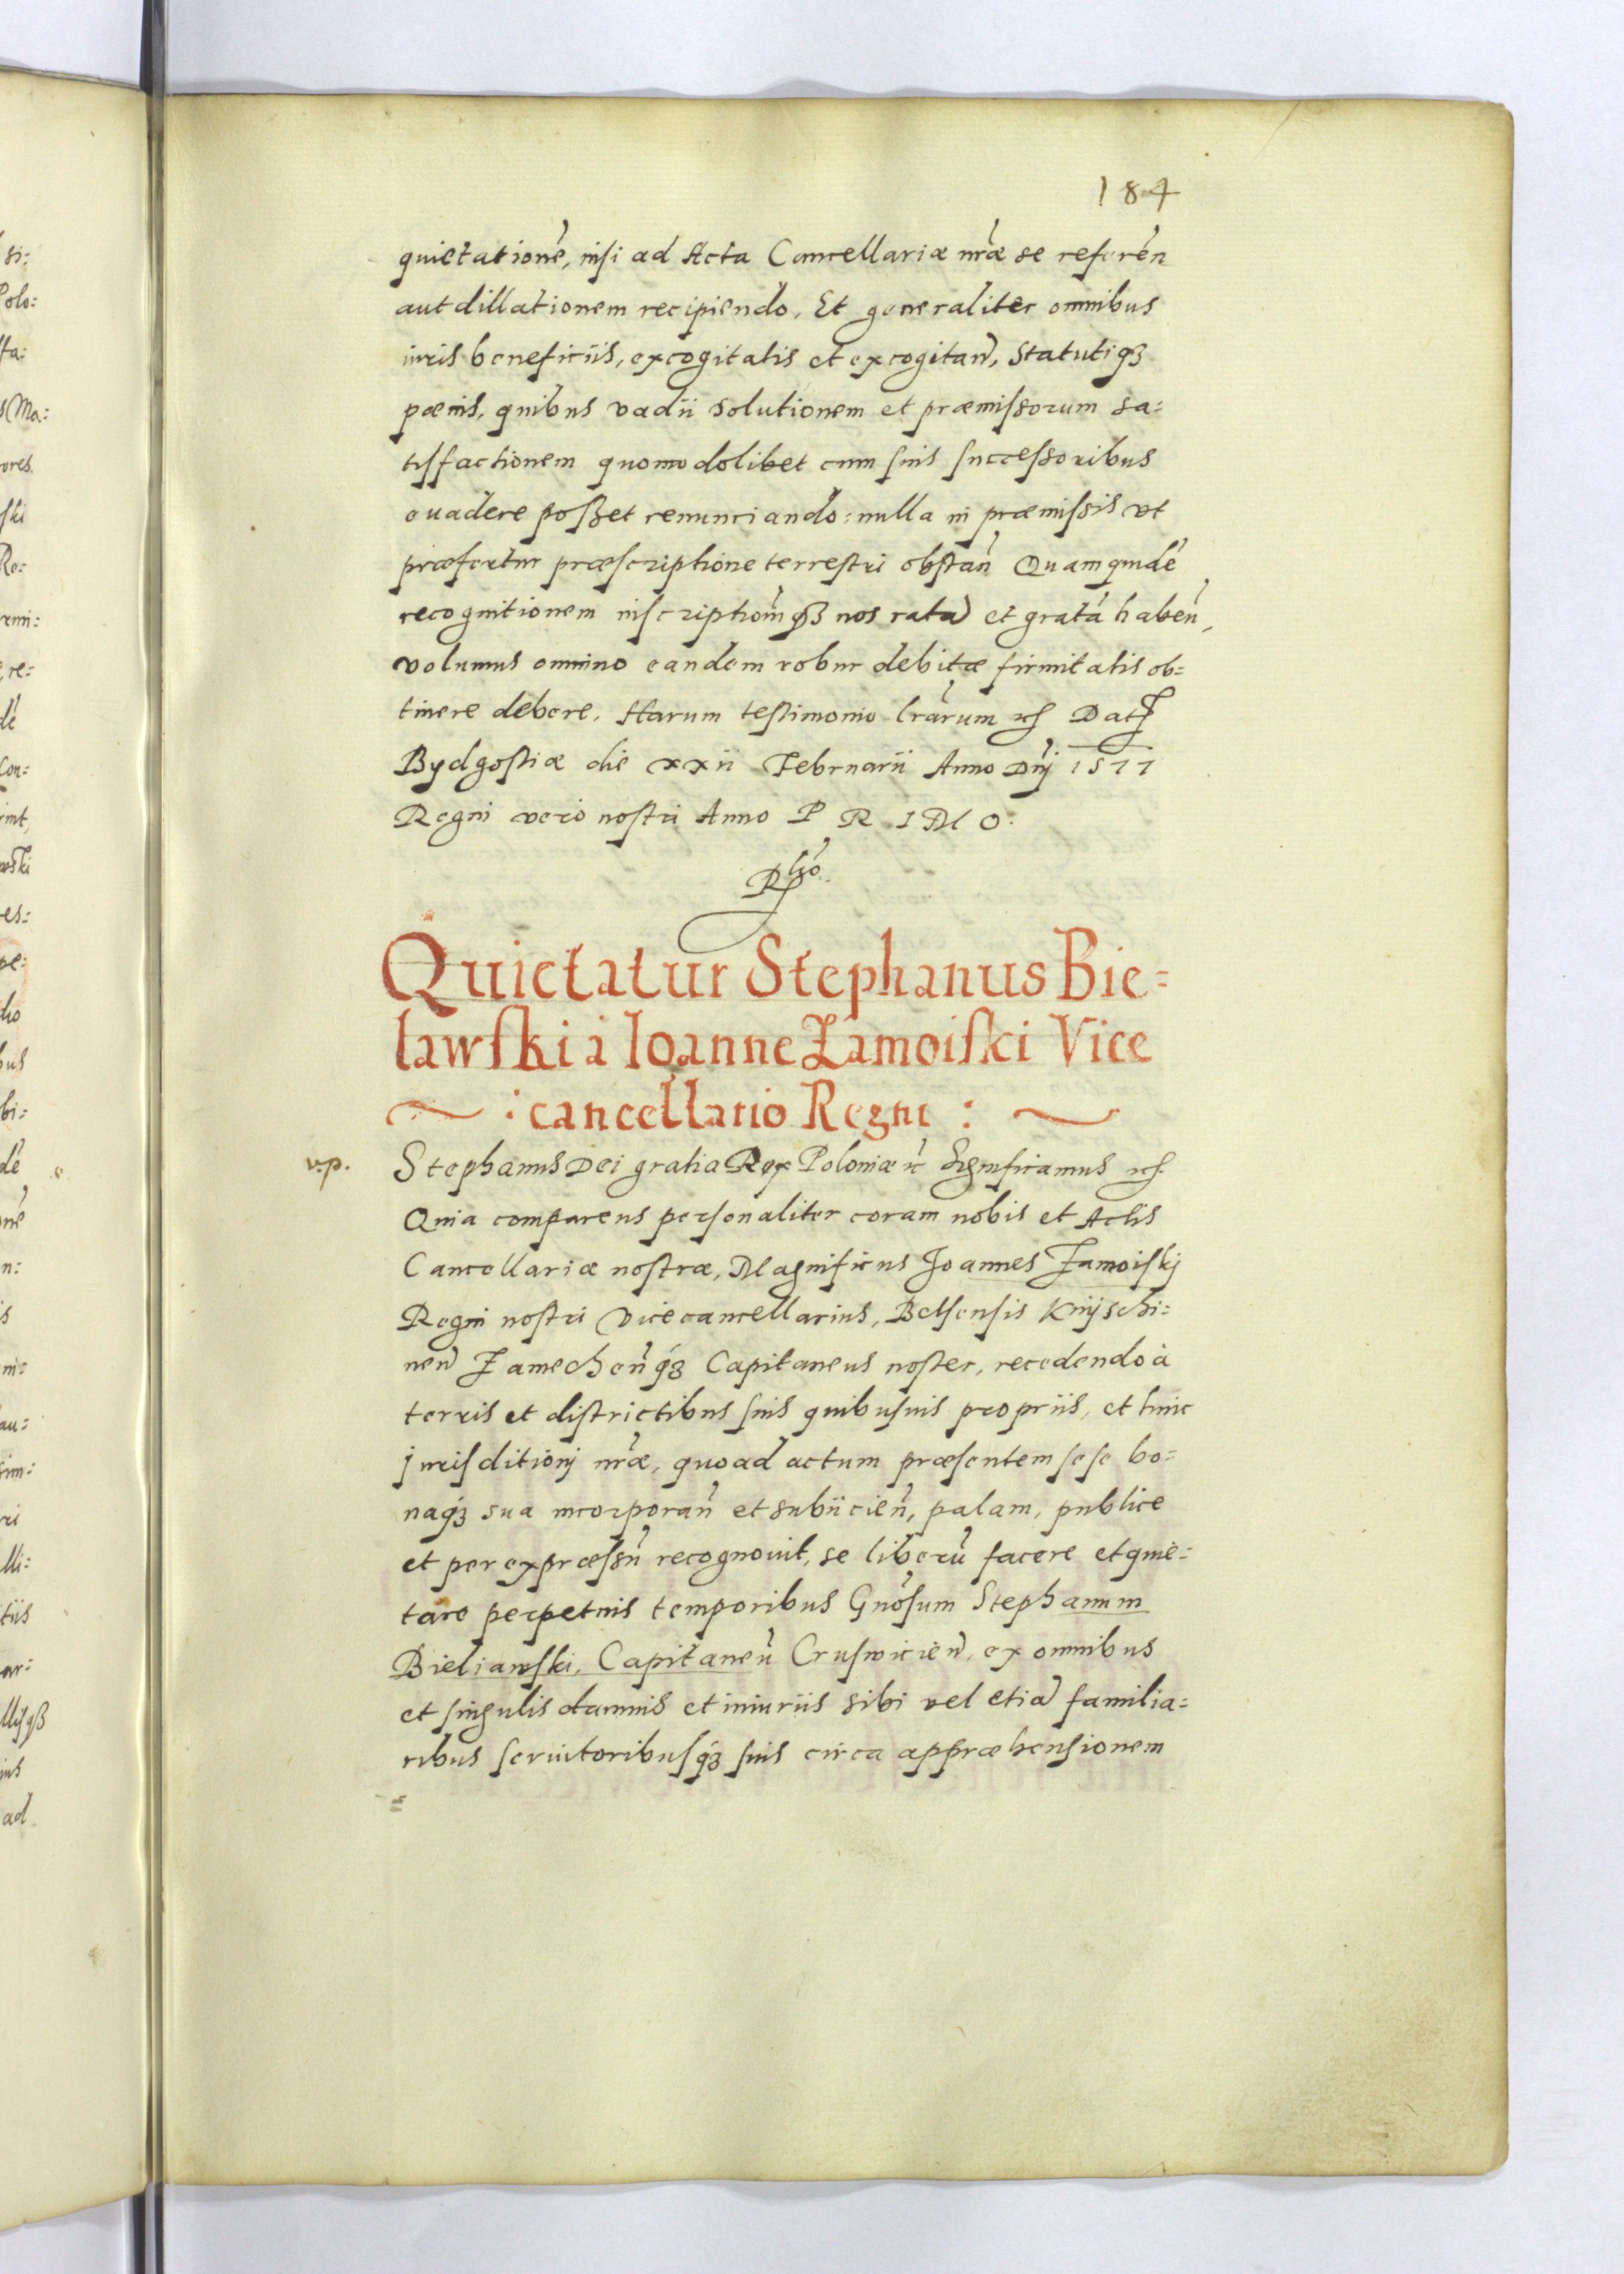 184
quietationẽ, nisi ad Acta Cancellariæ nr̃æ se referẽn
aut dillationem recipiendo, Et generaliter omnibus
iuris beneficiis, excogitatis et excogitañ, Statutiqꝫ
pœnis, quibus vadii solutionem et præmiſsorum sa=
tiſfactionem quomodolibet cum ſuis ſucceſsoribus
euadere poſset renunciando: nulla in præmiſsis vt
præfertur præſcriptione terreſtri obſtañ Quamquidẽ
recognitionem inſcriptionm̃qꝫ nos ratã et gratã habeñ,
volumus omnino eandem robur debitæ firmitatis ob=
tinere debere. Harum teſtimonio lr̃arum ꝛc̃ Dat̃
Bydgoſtiæ die xxii Februarii Anno Dnĩ 1577
Regni vero noſtri Anno P R I M O.
Quietatur Stephanus Bie=
lawſki à Ioanne Zamoiſki Vice
: cancellario Regni :
v.p.
Stephanus Dei gratia Rex Poloniæ ꝛc̃ Significamus ꝛc̃.
Quia comparens perſonaliter coram nobis et Actis
Cancellariæ noſtræ, Magnificus Joannes Zamoiſkj
Regni noſtri Vicecancellarius, Belſenſis Knijschi=
neñ Zamecheñqꝫ Capitaneus noſter, recedendo à
terris et diſtrictibus ſuis quibuſuis propriis, et huic
jurisditionj nr̃æ, quoad actum præſentem ſeſe bo=
naqꝫ sua incorporañ et subiicieñ, palam, publice
et per expræſsũ recognouit, se liberũ facere et quie=
tare perpetuis temporibus Gnõſum Stephanum
Bieliawſki, Capitaneũ Cruſwicieñ, ex omnibus
et ſingulis damnis et iniuriis sibi vel etiã familia=
ribus ſeruitoribuſqꝫ ſuis circa appræhenſionem